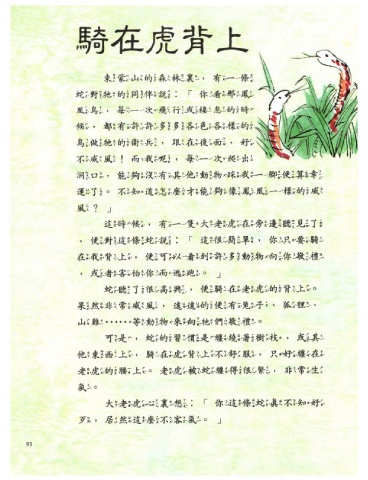 騎在虎背上
東蒙山的森林裏,有一條
蛇對牠的同伴說:「你看那鳳
凰鳥,每一次飛行或棲息的時
候,都有許許多多各色各樣的
鳥做牠的衛兵,跟在後面,好
不威風!而我呢,每一次爬出
洞口,能夠沒有其他動物踩我一腳便算幸
運了。不知道怎麼才能夠像鳳凰一樣的威
風?」
這時候,有一隻大老虎在旁邊聽見了
,便對這條蛇說:「這很簡單,你只要騎
在我背上,便可以看到許多動物向你敬禮
,或者害怕你而逃跑。」
蛇聽了很高興,便騎在老虎的背上。
果然非常威風,遠遠的便有兔子、狐狸、
山雞⋯⋯等動物來向牠們敬禮。
可是,蛇的習慣是纏繞著樹枝,或其
他東西上,騎在虎背上不舒服,只好纏在
老虎的腰上。老虎被蛇纏得很緊,非常生
氣。
大老虎心裏想:「你這條蛇真不知好
歹,居然這麼不客氣。」
93